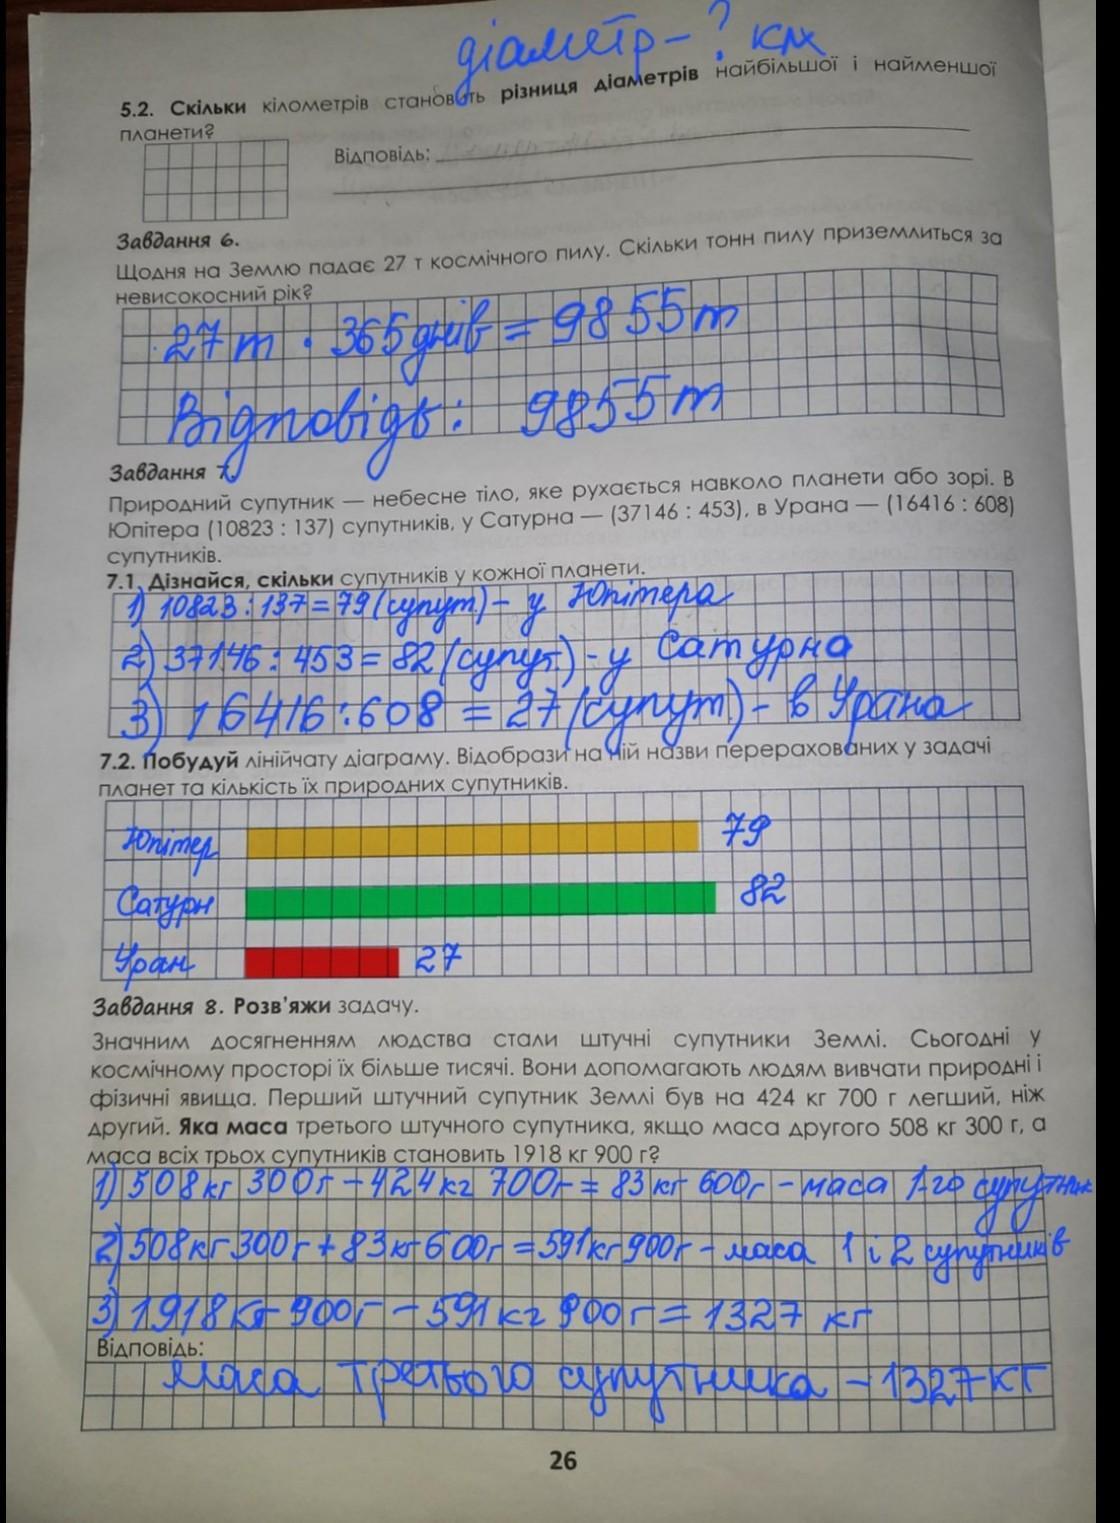 діаметр - ? км
5.2. Скільки кілометрів становить різниця діаметрів найбільшої і найменшої
планети?
Відповідь:
Завдання 6.
Щодня на Землю падає 27 т космічного пилу. Скільки тонн пилу приземлиться за
невисокосний рік?
27 т · 365 днів = 9855 т
Відповідь: 9855 т
Завдання 7.
Природний супутник — небесне тіло, яке рухається навколо планети або зорі. В
Юпітера (10823 : 137) супутників, у Сатурна — (37146 : 453), в Урана — (16416 : 608)
супутників.
7.1. Дізнайся, скільки супутників у кожної планети.
1) 10823 : 137 = 79 (супут.) - у Юпітера
2) 37146 : 453 = 82 (супут.) - у Сатурна
3) 16416 : 608 = 27 (супут.) - в Урана
7.2. Побудуй лінійчату діаграму. Відобрази на ній назви перерахованих у задачі
планет та кількість їх природних супутників.
Юпітер 79
Сатурн 82
Уран 27
Завдання 8. Розв'яжи задачу.
Значним досягненням людства стали штучні супутники Землі. Сьогодні у
космічному просторі їх більше тисячі. Вони допомагають людям вивчати природні і
фізичні явища. Перший штучний супутник Землі був на 424 кг 700 г легший, ніж
другий. Яка маса третього штучного супутника, якщо маса другого 508 кг 300 г, а
маса всіх трьох супутників становить 1918 кг 900 г?
1) 508 кг 300 г - 424 кг 700 г = 83 кг 600 г - маса 1-го супутник
2) 508 кг 300 г + 83 кг 600 г = 591 кг 900 г - маса 1 і 2 супутників
3) 1918 кг 900 г - 591 кг 900 г = 1327 кг
Відповідь:
маса третього супутника - 1327 кг
26